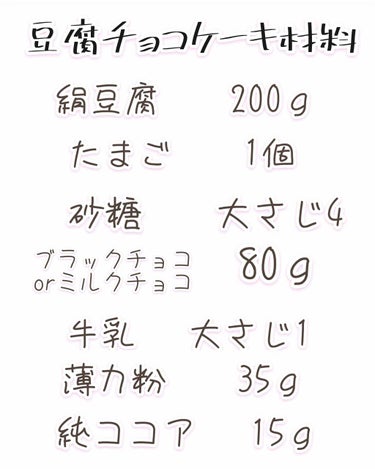 豆腐チョコケーキ材料
絹豆腐 200g
たまご 1個
砂糖 大さじ4
ブラックチョコ
orミルクチョコ 80g
牛乳 大さじ1
薄力粉 35g
純ココア 15g